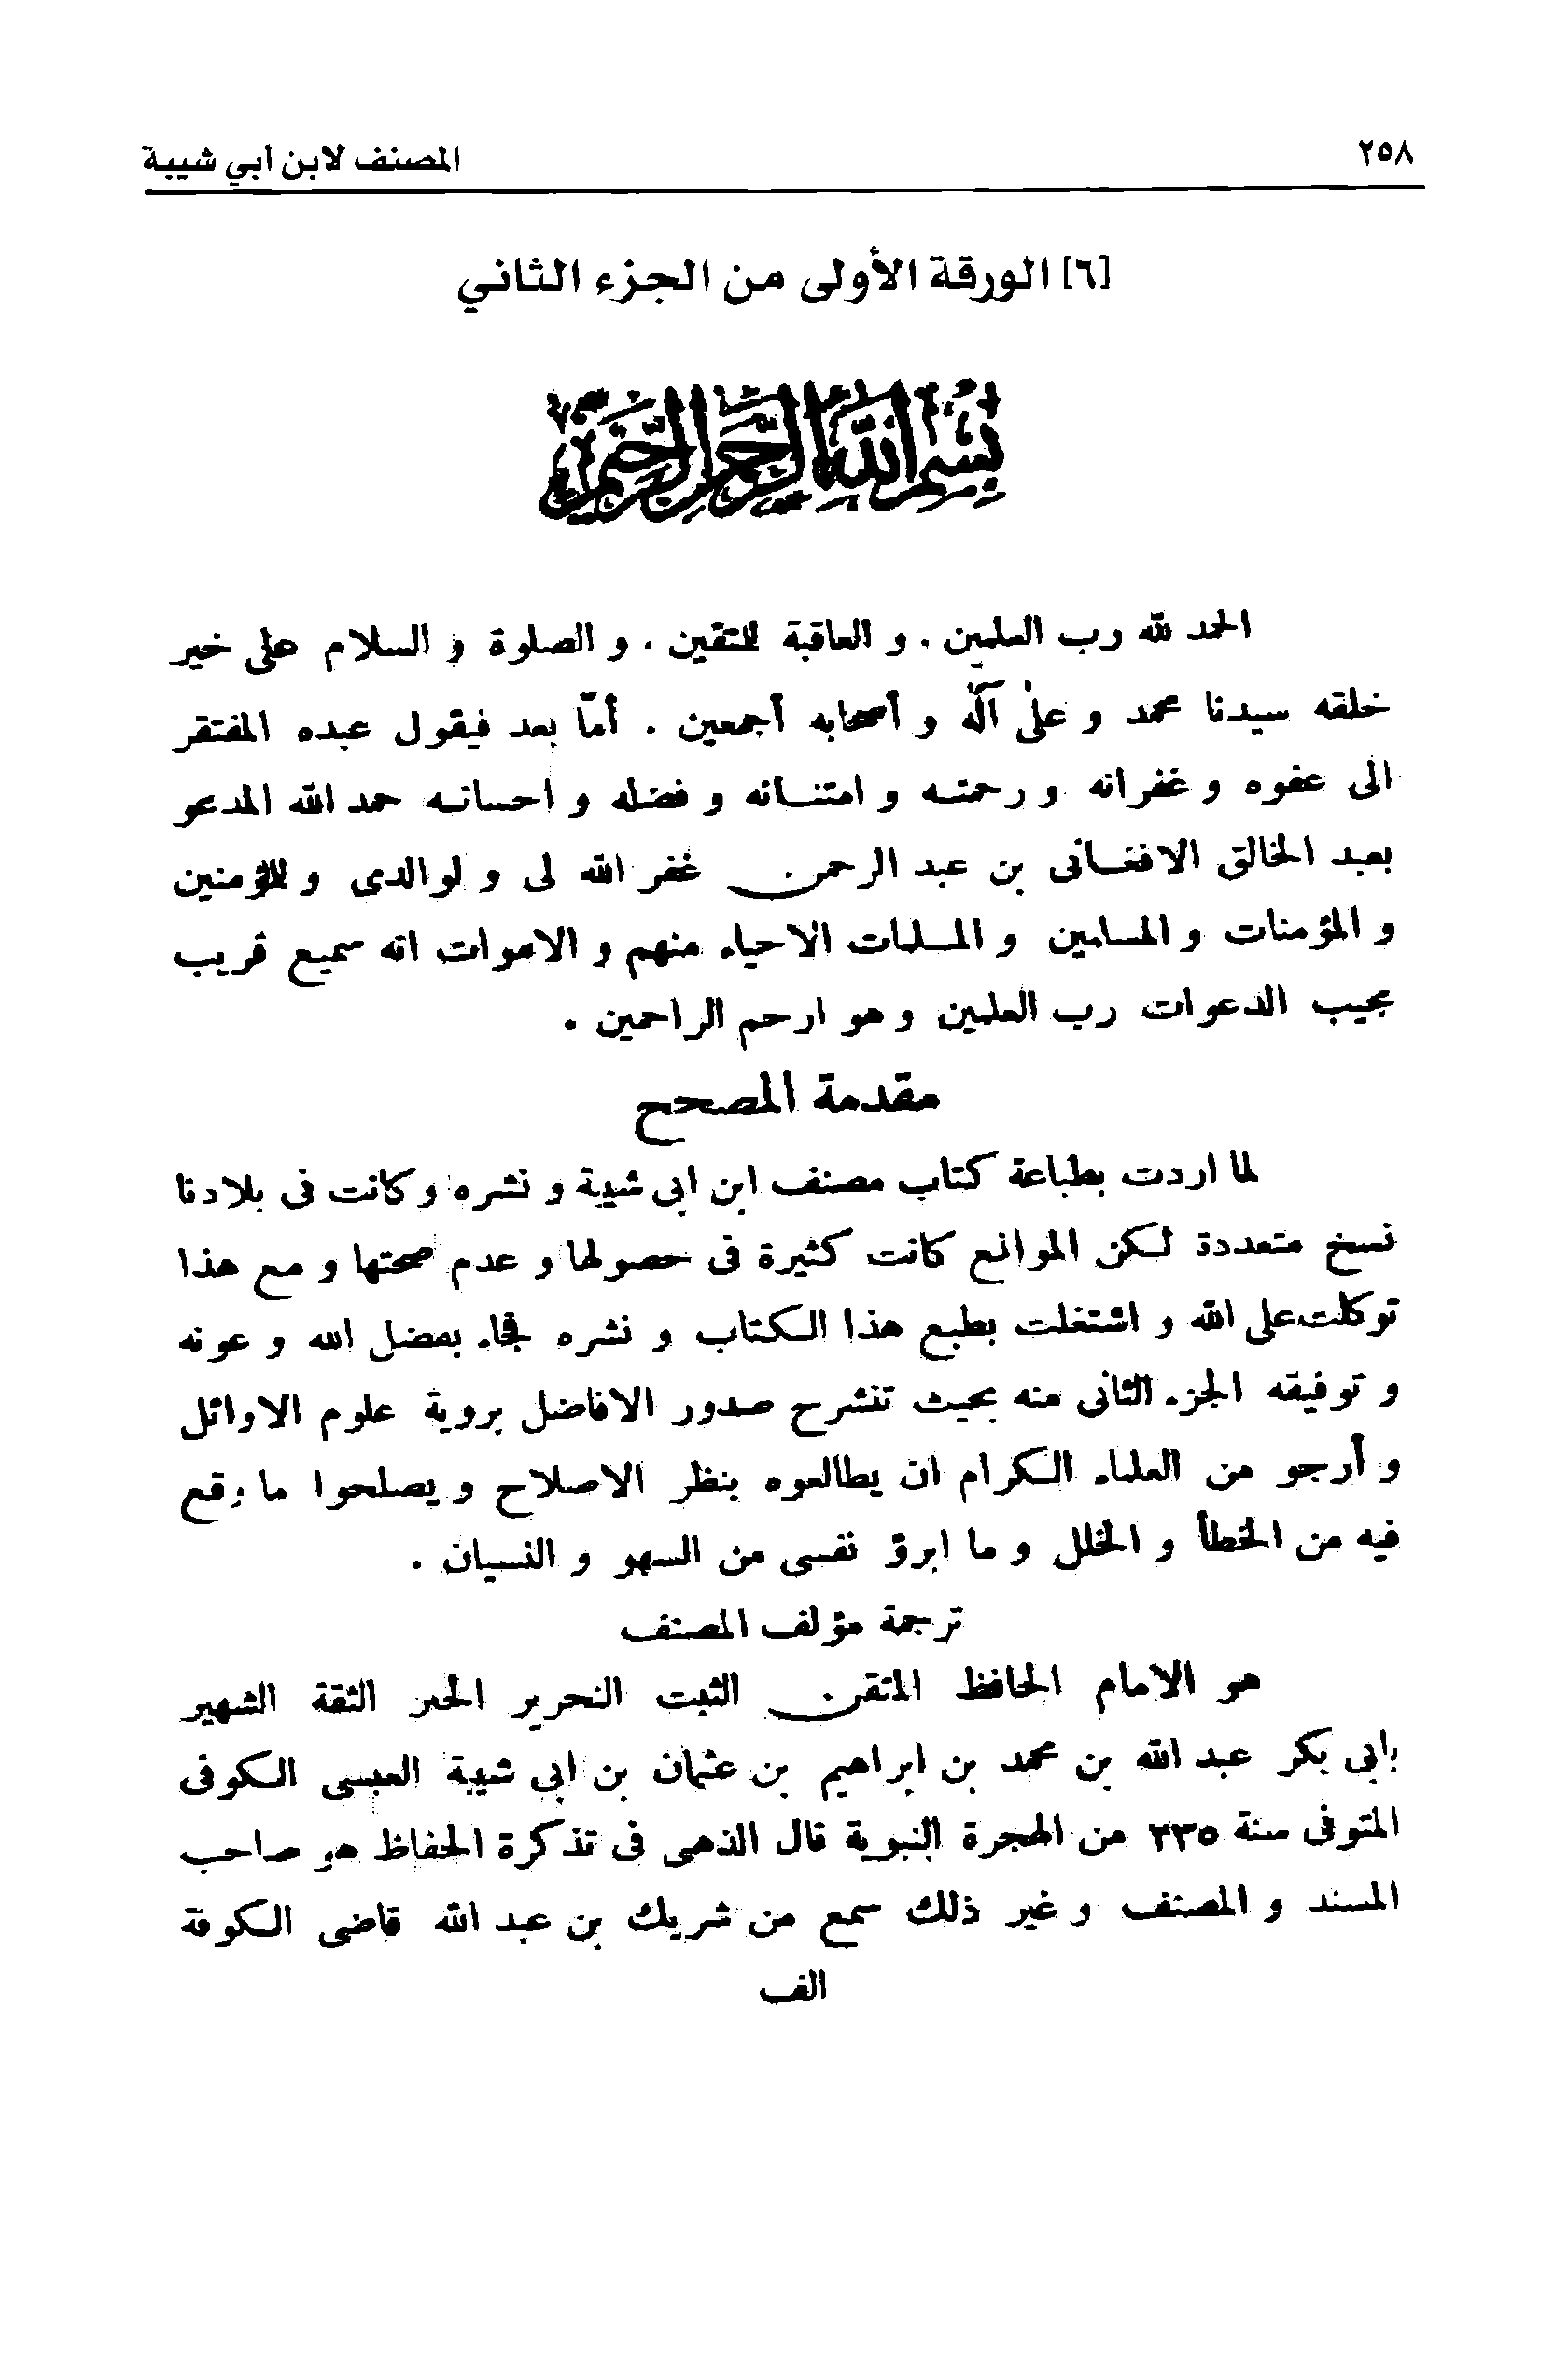 ٢٥٨
المصنف لابن أبي شيبة
[٦] الورقة الأولى من الجزء الثاني
بسم الله الرحمن الرحيم
الحمد لله رب العلمين . و العاقبة للمتقين . و الصلوة و السلام على خير
خلقه سيدنا محمد و على آله و أصحابه أجمعين . أمّا بعد فيقول عبده المفتقر
الى عفوه و غفرانه و رحمته و امتنانه و فضله و احسانه حمد الله المدعو
بعبد الخالق الافغانى بن عبد الرحمن غفر الله لى و لوالدى و للمؤمنين
و المؤمنات و المسلمين و المسلمات الاحياء منهم و الاموات انه سميع قريب
مجيب الدعوات رب العلمين و هو ارحم الراحمين .
مقدمة المصحح
لما اردت بطباعة كتاب مصنف ابن ابى شيبة و نشره و كانت فى بلادنا
نسخ متعددة لكن الموانع كانت كثيرة فى حصولها و عدم صحتها و مع هذا
توكلت على الله و اشتغلت بطبع هذا الكتاب و نشره فجاء بفضل الله و عونه
و توفيقه الجزء الثانى منه بحيث تنشرح صدور الافاضل بروية علوم الاوائل
و أرجو من العلماء الكرام ان يطالعوه بنظر الاصلاح و يصلحوا ما وقع
فيه من الخطأ و الخلل و ما ابرؤ نفسى من السهو و النسيان .
ترجمة مؤلف المصنف
هو الامام الحافظ المتقن الثبت النحرير الحبر الثقة الشهير
بابى بكر عبد الله بن محمد بن ابراهيم بن عثمان بن ابى شيبة العبسى الكوفى
المتوفى سنة ٢٣٥ من الهجرة النبوية قال الذهبى فى تذكرة الحفاظ هو صاحب
المسند و المصنف و غير ذلك سمع من شريك بن عبد الله قاضى الكوفة
الف